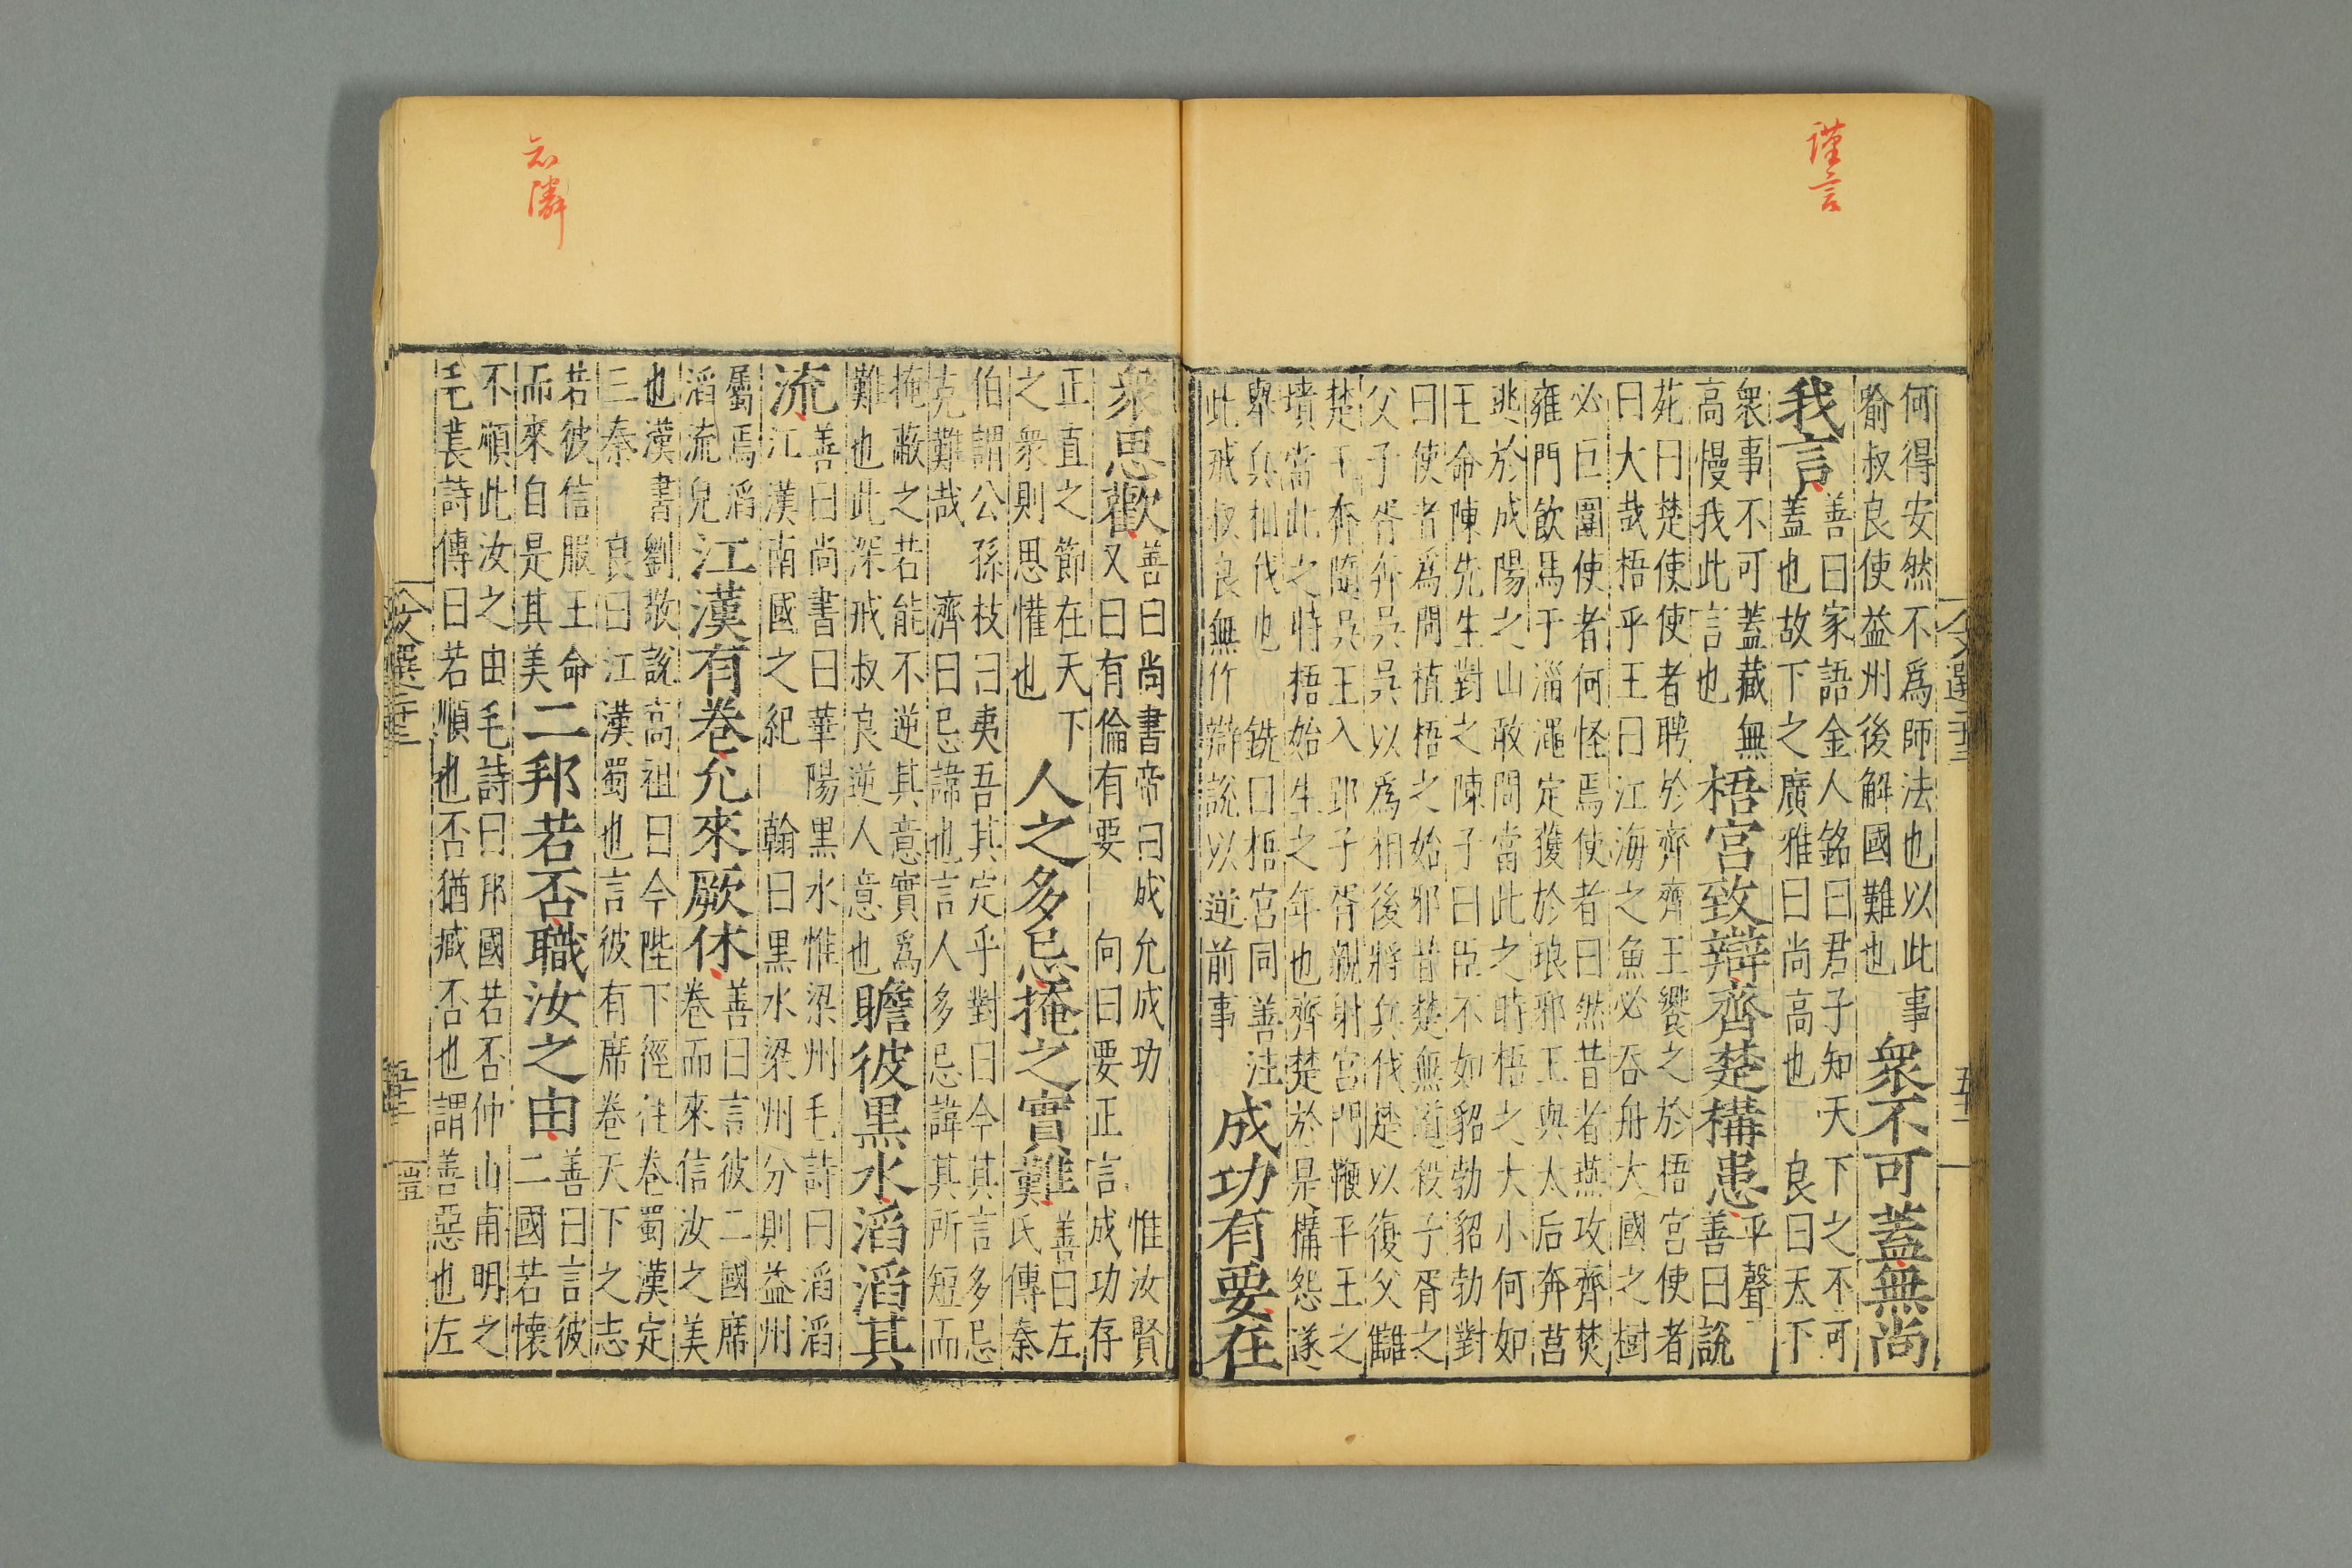 謹言
何得安然不爲師法也以此事
喻叔良使益州後解國難也
衆不可蓋無尚
我言
善曰家語金人銘曰君子知天下之不可
蓋也故下之廣雅曰尚高也 良曰天下
衆事不可蓋藏無
高慢我此言也
梧宮致辯齊楚構患
平聲
善曰說
苑曰楚使使者聘於齊齊王饗之於梧宮使者
曰大哉梧乎王曰江海之魚必吞舟大國之樹
必巨圍使者何怪焉使者曰然昔者燕攻齊焚
雍門飲馬于淄澠定獲於琅邪王與太后奔莒
逃於成陽之山敢問當此之時梧之大小何如
王命陳先生對之陳子曰臣不如貂勃貂勃對
曰使者爲問植梧之始邪昔楚無道殺子胥之
父子胥奔吳吳以爲相後將兵伐楚以復父讎
楚王奔隨吳王入郢子胥親射宮門鞭平王之
墳當此之時梧始生之年也齊楚於是構怨遂
舉兵相伐也 銑曰梧宮同善注
此戒叔良無作辯說以逆前事
成功有要在
知隣
衆思歡
善曰尚書帝曰成允成功 惟汝賢
又曰有倫有要 向曰要正言成功存
正直之節在天下
之衆則思懽也
人之多忌掩之實難
善曰左
氏傳秦
伯謂公孫枝曰夷吾其定乎對曰今其言多忌
克難哉 濟曰忌諱也言人多忌諱其所短而
掩蔽之若能不逆其意實爲
難也此深戒叔良逆人意也
瞻彼黑水滔滔其
流
善曰尚書曰華陽黑水惟梁州毛詩曰滔滔
江漢南國之紀 翰曰黑水梁州分則益州
屬焉滔
滔流皃
江漢有卷允來厥休
善曰言彼二國席
卷而來信汝之美
也漢書劉敬說高祖曰今陛下徑往卷蜀漢定
三秦 良曰江漢蜀也言彼有席卷天下之志
若彼信服王命
而來自是其美
二邦若否職汝之由
善曰言彼
二國若懷
不順此汝之由毛詩曰邦國若否仲山甫明之
毛萇詩傳曰若順也否猶臧否也謂善惡也左